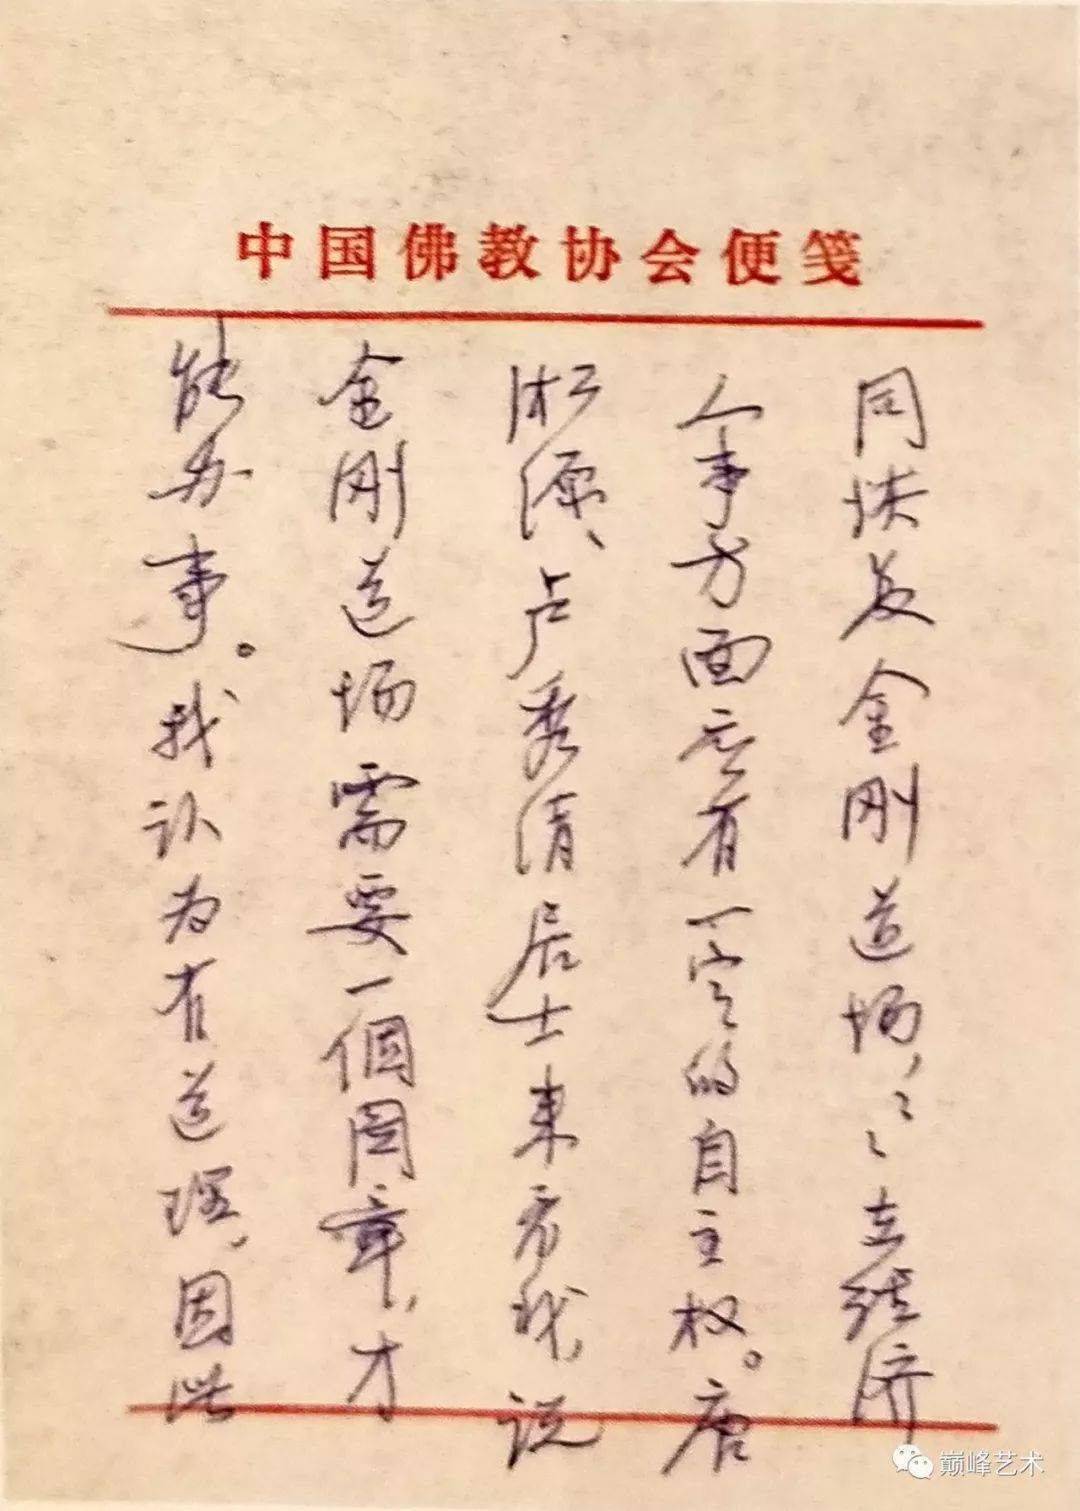 中国佛教协会便笺
同扶及金刚道场,ミ在经济
人事方面应有一定的自主权。唐
淞源、卢秀清居士来看我,说
金刚道场需要一個图章,才
能办事。我认为有道理,因此
巅峰艺术